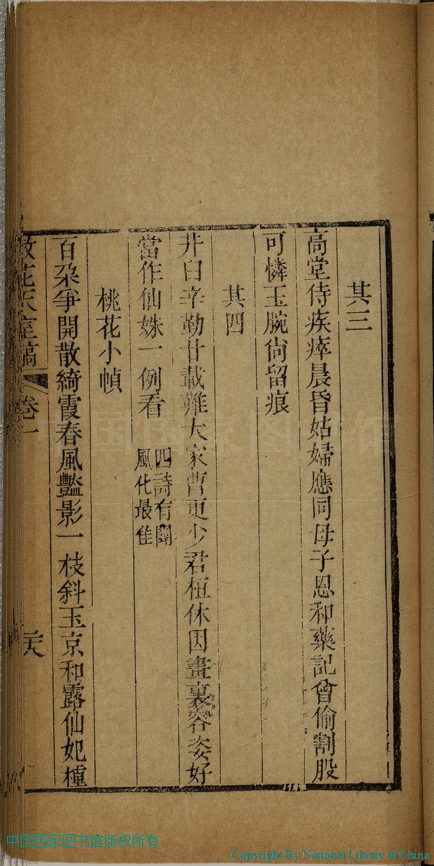 其三
高堂侍疾瘁晨昏姑婦應同母子恩和藥記曾偷割股
可憐玉腕尙留痕
其四
井臼辛勤廿載難大家曹更少君桓休因畫裏容姿好
當作仙姝一例看
四詩有關
風化最佳
桃花小幀
百朶爭開散綺霞春風豔影一枝斜玉京和露仙妃種
散花天室稿
卷一
二六
中国国家图书馆版权所有
Copyright By National Library of China